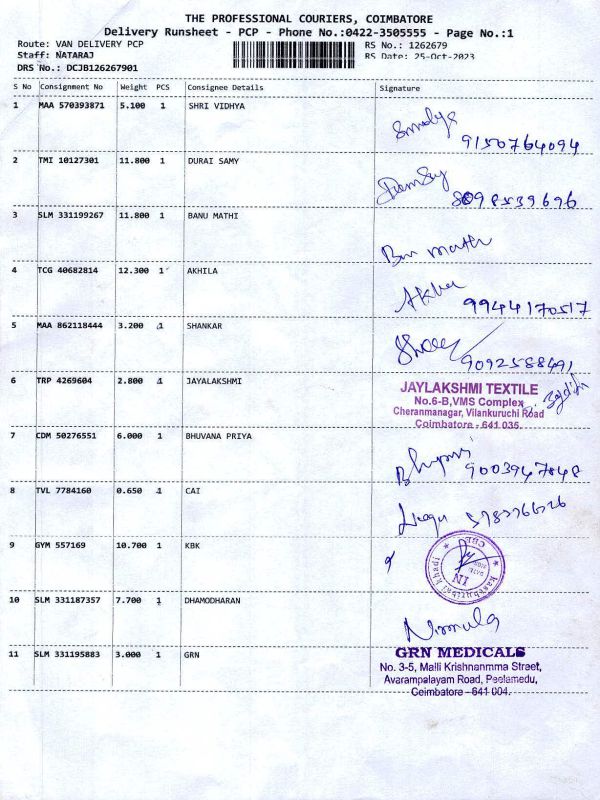 THE PROFESSIONAL COURIERS, COIMBATORE
Delivery Runsheet - PCP - Phone No.:0422-3505555 - Page No.:1
Route: VAN DELIVERY PCP
RS No.: 1262679
Staff: NATARAJ
RS Date: 25-Oct-2023
DRS No.: DCJB126267901
S No Consignment No Weight PCS Consignee Details Signature
1 MAA 570393871 5.100 1 SHRI VIDHYA
9150764094
2 TMI 10127301 11.800 1 DURAI SAMY
8098539696
3 SLM 331199267 11.800 1 BANU MATHI
4 TCG 40682814 12.300 1 AKHILA
9944170517
5 MAA 862118444 3.200 1 SHANKAR
9092588491
6 TRP 4269604 2.800 1 JAYALAKSHMI
JAYLAKSHMI TEXTILE
No.6-B,VMS Complex
Cheranmanagar, Vilankuruchi Road
Coimbatore - 641 035.
7 CDM 50276551 6.000 1 BHUVANA PRIYA
9003947848
8 TVL 7784160 0.650 1 CAI
9 GYM 557169 10.700 1 KBK
10 SLM 331187357 7.700 1 DHAMODHARAN
Nirmula
11 SLM 331195883 3.000 1 GRN
GRN MEDICALS
No. 3-5, Malli Krishnanmma Street,
Avarampalayam Road, Peelamedu,
Coimbatore - 641 004.